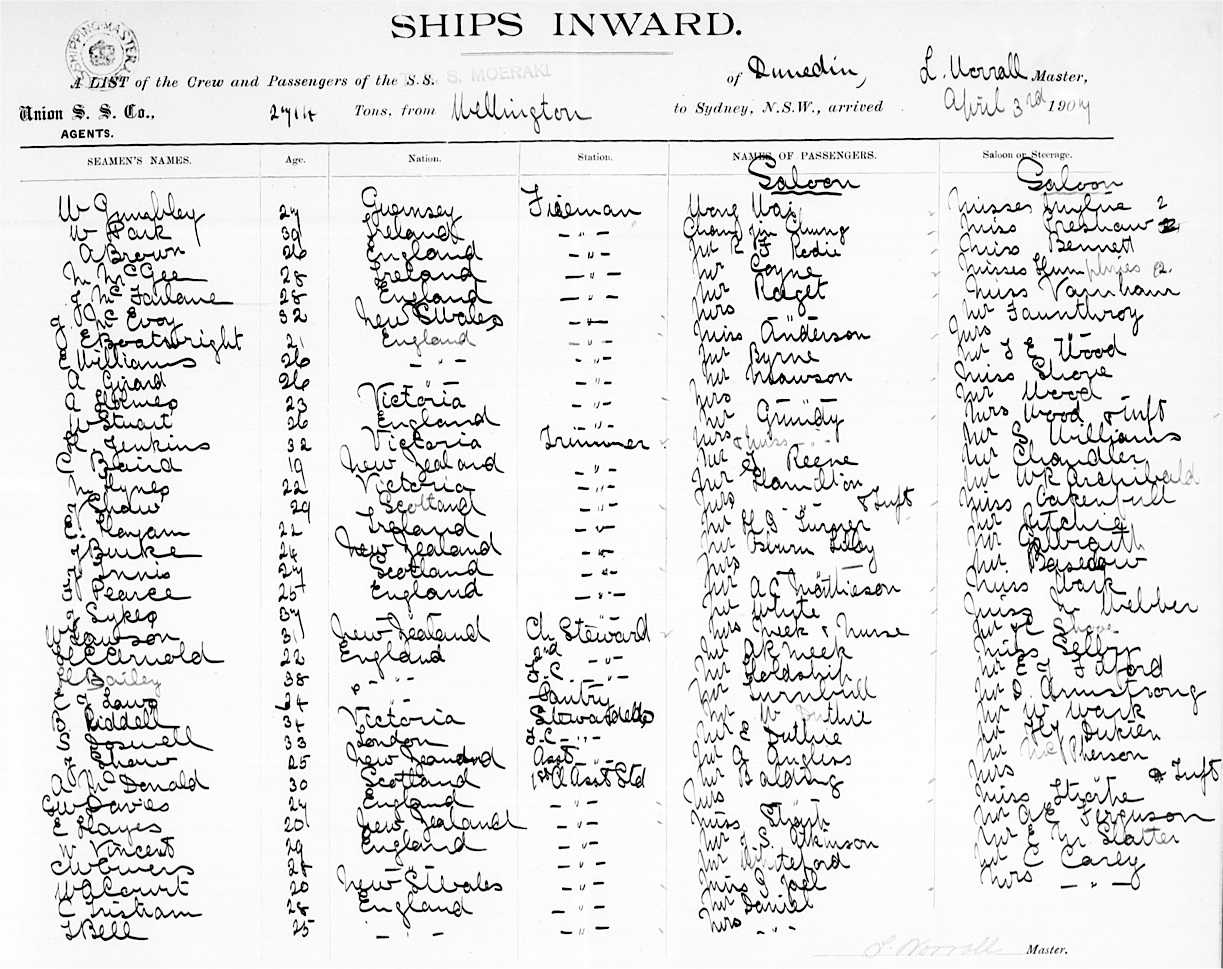 SHIPS INWARD.
SHIPPING MASTER
A LIST of the Crew and Passengers of the S.S. S. MOERAKI of Dunedin, L. Worrall Master,
Union S. S. Co., AGENTS. 2714 Tons, from Wellington to Sydney, N.S.W., arrived April 3rd 1904
SEAMEN'S NAMES. Age. Nation. Station. NAMES OF PASSENGERS. Saloon or Steerage.
Saloon Saloon
W 27 Guernsey Fireman Wong Wai Misses 2
W Park 39 Ireland - " - Chong Jin Chung Miss Freshaw
A Brown 26 England - " - Mr R F Redie Miss Bennett
M McGee 28 Ireland - " - Mr Coyne Misses Humphries 2.
J McFarlane 28 England - " - Mr Raget Miss Varnham
J McEvoy 32 New S Wales - " - Mrs Mr Faunthroy
E Boatwright 21 England - " - Miss Anderson Mrs
E Williams 26 - " - - " - Mr Byrne Mr T E Wood
A Girard 26 " - " - Mr Mawson Miss Shore
A Holmes 23 Victoria - " - Mrs Mr Wood
W Stuart 26 England - " - Mr Grundy Mrs Wood & Inft
R Jenkins 32 Victoria Trimmer Mrs & Miss Mr S Williams
C Baird 19 New Zealand - " - Mr Reene Mr Chandler
M Hynes 22 Victoria - " - Mr Hamilton Mr W R Archibald
Shaw 29 Scotland - " - Mrs & Inft Miss Oakenfull
C Hayam 22 Ireland - " - Mr H B Turner Mr Ritchie
J Burke 24 New Zealand - " - Mr Osburn Lilly Mr Galbraith
Innis 27 Scotland - " - Mrs Mr Basedow
Pearce 25 England - " - Mr A C Matthieson Miss Wark
Sykes 37 " - " - Mr White Miss M Webber
W Lawson 31 New Zealand Ch Steward Mrs Meek & Nurse Mr R Shore
Arnold 22 England 2nd - " - Mr A K Meek Miss Selby
H Bailey 38 - " - F. C. - " - Mr Holdship Mr E J Fulford
C J Laws 24 - " - Pantry Mr Turnbull Mr D. Armstrong
Riddell 34 Victoria Stewardess Mr W Duthie Mr W Wark
S Boswell 33 London F. C. - " - Mr E Duthie Mr Hy Dukien
J Shaw 25 New Zealand Asst " Mr G Angliss Mr McPherson
A McDonald 30 Scotland 1st Cl Asst Std Mr Balding Mrs & Inft
G W Davies 27 England - " - Mrs Miss Stjorke
E Hayes 20 New Zealand - " - Miss Stjork Mr A E Ferguson
W Vincent 29 England - " - Mr J. S. Atkinson Mr E M Slatter
C W Ewers 28 " - " - Mr Whiteford Mr C Carey
W A Court 20 New S Wales - " - Miss J Joel Mrs - " -
C Tristram 28 England - " - Mr Daniel
T Bell 25 - " - - " - Mrs - " -
L. Worrall Master.